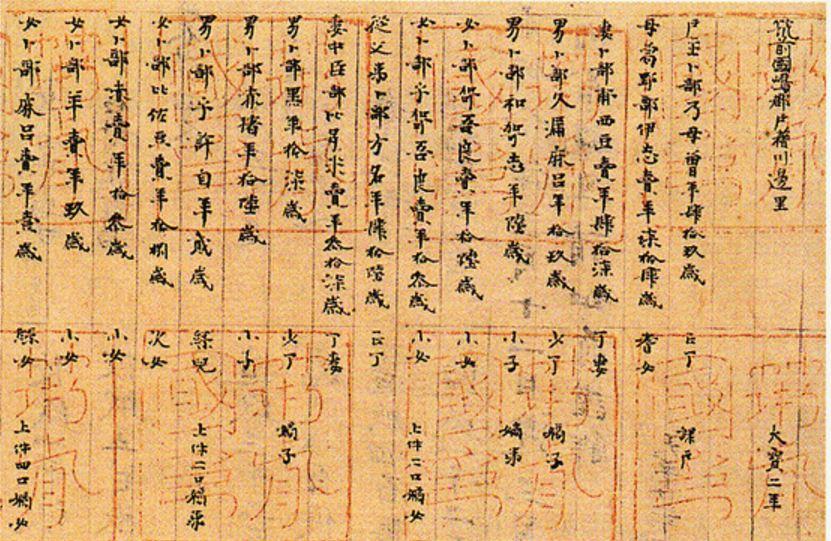 筑前國嶋郡戸籍川邊里 大寶二年
戸主卜部乃母曽年肆拾玖歳 正丁 課戸
母葛野部伊志賣年柒拾肆歳 耆女
妻卜部甫西豆賣年肆拾柒歳 丁妻
男卜部久漏麻呂年拾玖歳 少丁 嫡子
男卜部和哿志年陸歳 小子 嫡弟
女卜部哿吾良賣年拾陸歳 小女
女卜部乎哿吾良賣年拾參歳 小女 上件二口嫡女
從父弟卜部方名年肆拾陸歳 正丁
妻中臣部比多米賣年參拾柒歳 丁妻
男卜部黒年拾柒歳 少丁 嫡子
男卜部赤猪年拾陸歳 小子
男卜部乎許自年貳歳 緑兒 上件二口嫡弟
女卜部比佐豆賣年拾捌歳 次女
女卜部赤賣年拾參歳 小女
女卜部羊賣年玖歳 小女
女卜部麻呂賣年壹歳 緑女 上件四口嫡女